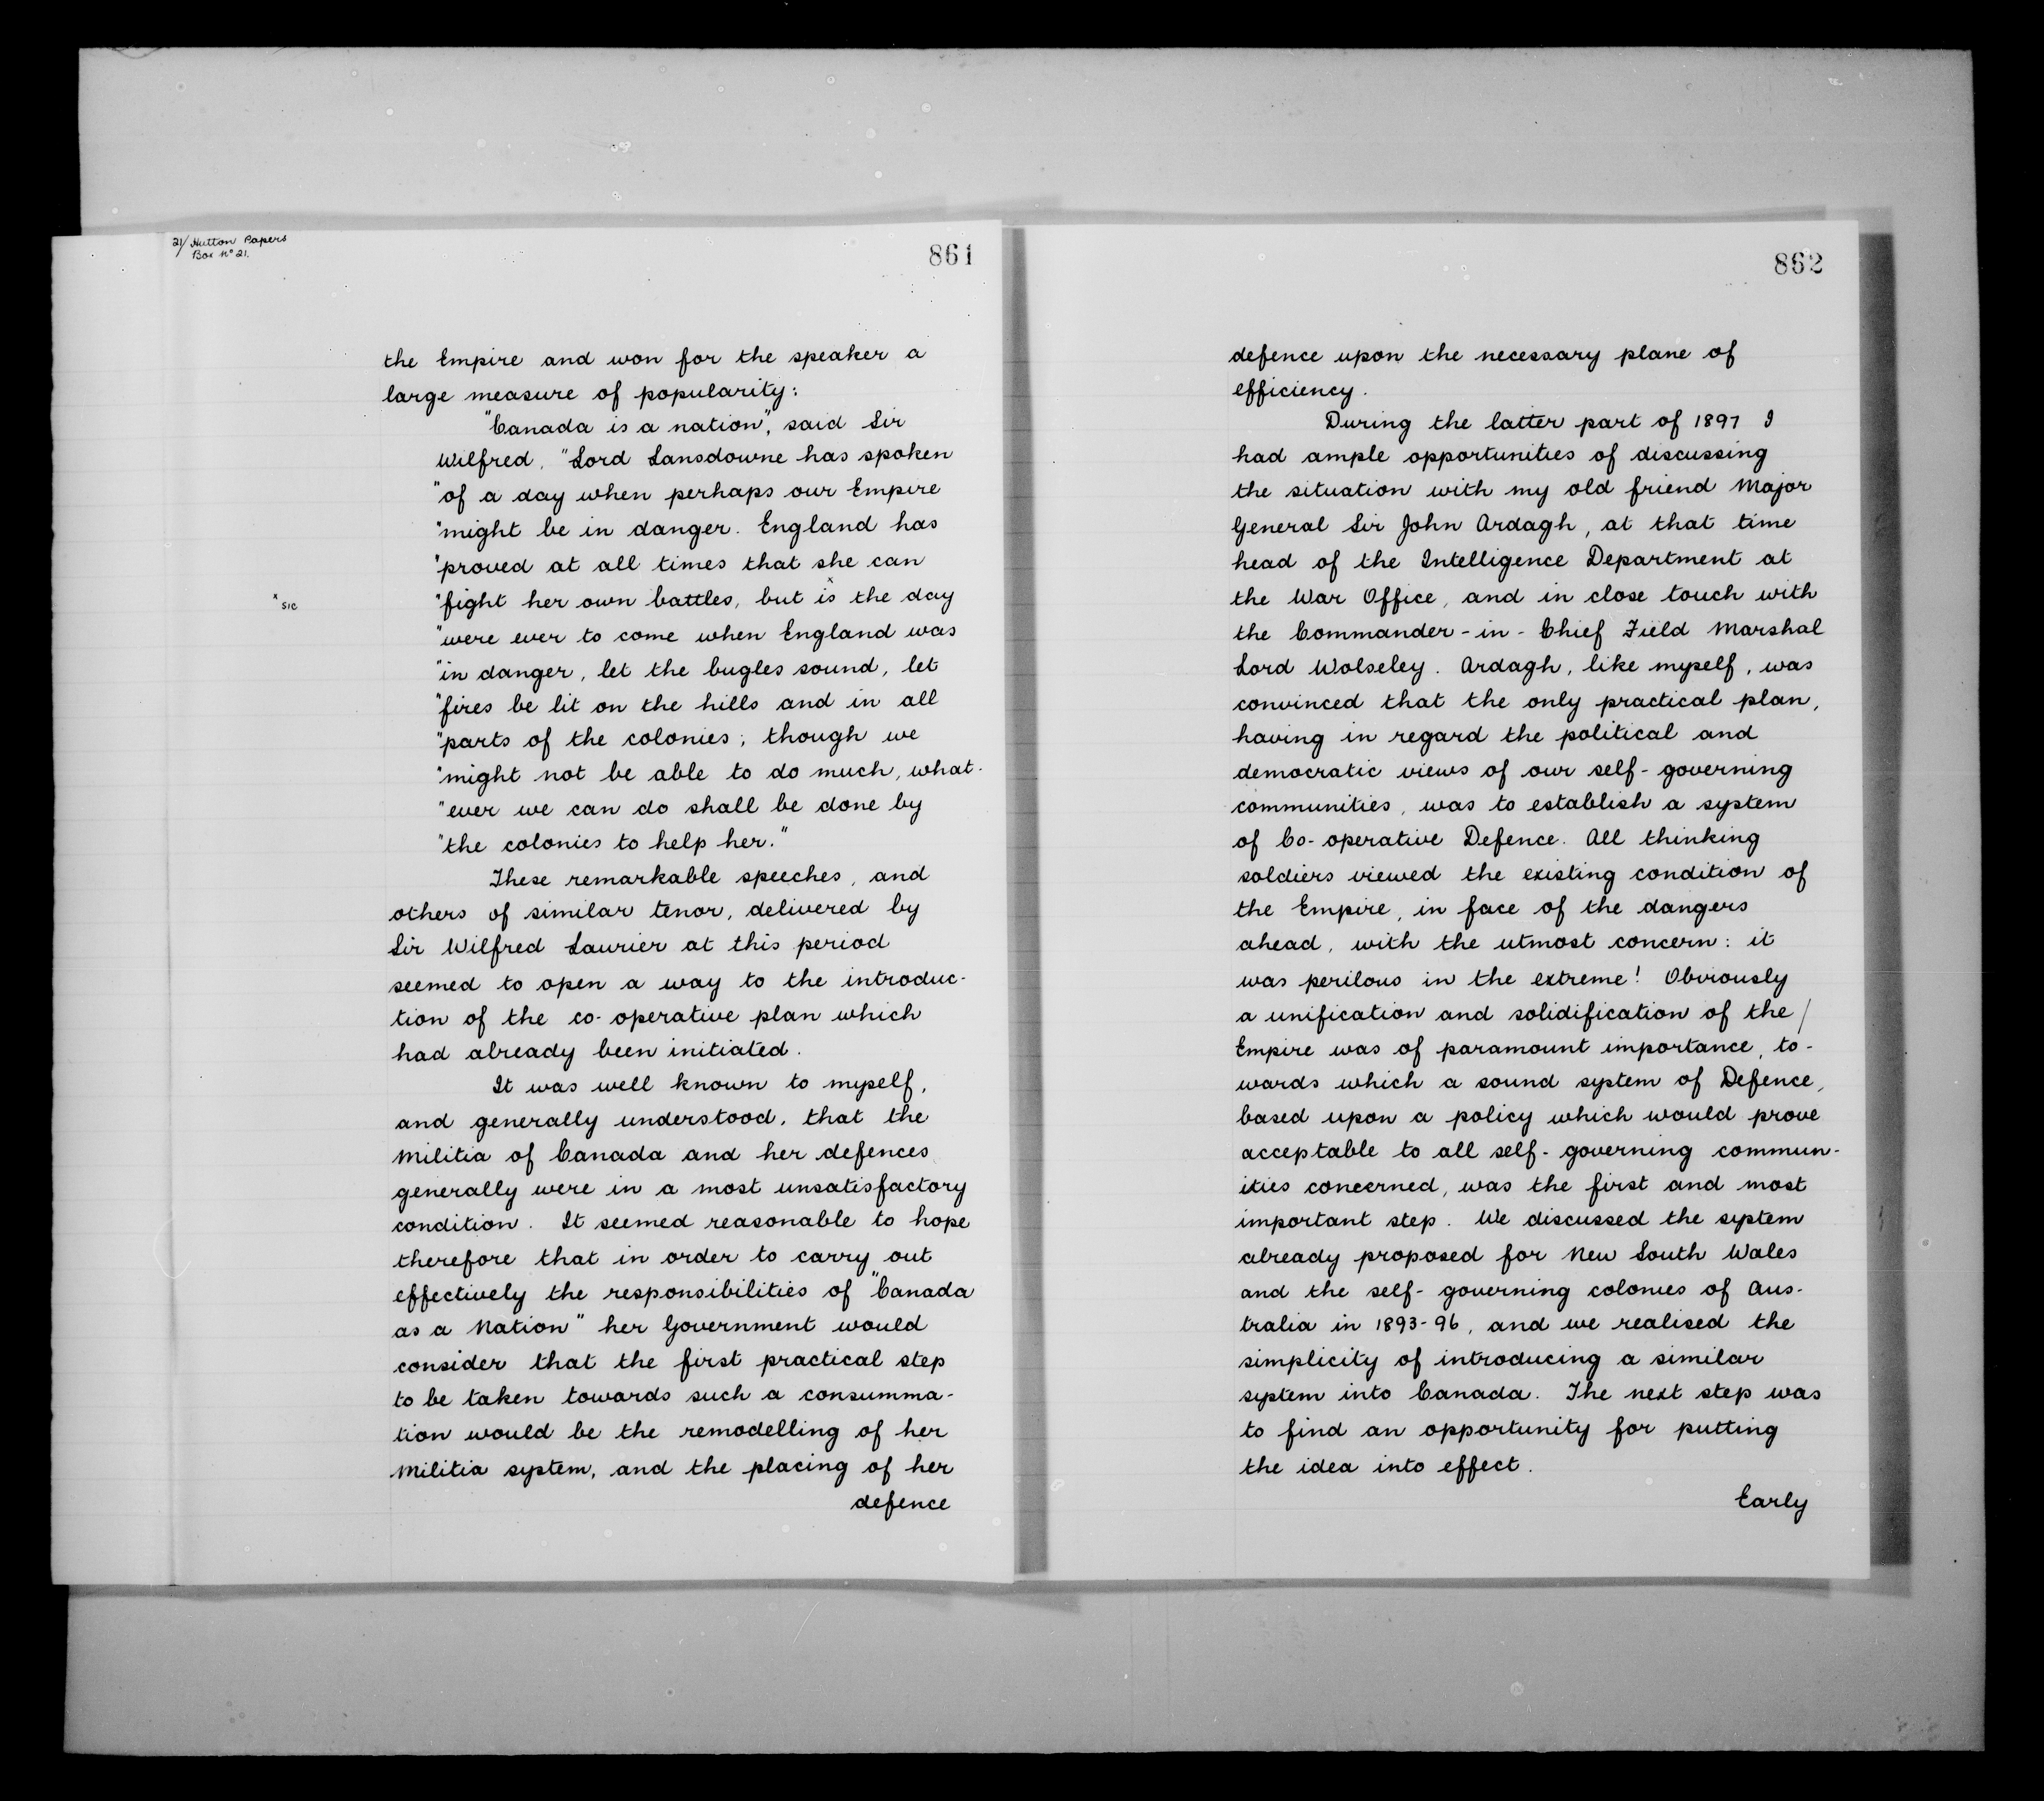 21/ Hutton Papers
Box No 21.
861
the Empire and won for the speaker a
large measure of popularity:
"Canada is a nation", said Sir
Wilfred, "Lord Lansdowne has spoken
"of a day when perhaps our Empire
"might be in danger. England has
"proved at all times that she can
x sic
"fight her own battles, but is x the day
"were ever to come when England was
"in danger, let the bugles sound, let
"fires be lit on the hills and in all
"parts of the colonies; though we
"might not be able to do much, what-
"ever we can do shall be done by
"the colonies to help her."
These remarkable speeches, and
others of similar tenor, delivered by
Sir Wilfred Laurier at this period
seemed to open a way to the introduc-
tion of the co-operative plan which
had already been initiated.
It was well known to myself,
and generally understood, that the
Militia of Canada and her defences
generally were in a most unsatisfactory
condition. It seemed reasonable to hope
therefore that in order to carry out
effectively the responsibilities of "Canada
as a Nation" her Government would
consider that the first practical step
to be taken towards such a consumma-
tion would be the remodelling of her
Militia system, and the placing of her
defence
862
defence upon the necessary plane of
efficiency.
During the latter part of 1897 I
had ample opportunities of discussing
the situation with my old friend Major
General Sir John Ardagh, at that time
head of the Intelligence Department at
the War Office, and in close touch with
the Commander-in-Chief Field Marshal
Lord Wolseley. Ardagh, like myself, was
convinced that the only practical plan,
having in regard the political and
democratic views of our self-governing
communities, was to establish a system
of Co-operative Defence. All thinking
soldiers viewed the existing condition of
the Empire, in face of the dangers
ahead, with the utmost concern: it
was perilous in the extreme! Obviously
a unification and solidification of the /
Empire was of paramount importance, to-
wards which a sound system of Defence,
based upon a policy which would prove
acceptable to all self-governing commun-
ities concerned, was the first and most
important step. We discussed the system
already proposed for New South Wales
and the self-governing colonies of Aus-
tralia in 1893-96, and we realised the
simplicity of introducing a similar
system into Canada. The next step was
to find an opportunity for putting
the idea into effect.
Early